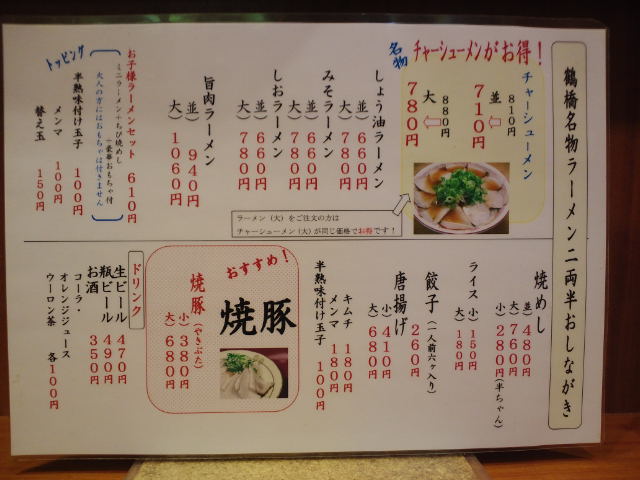 鶴橋名物ラーメン二両半おしながき
名物
チャーシューメンがお得！
チャーシューメン
並
810円
710円
大
880円
780円
しょう油ラーメン
並）660円
大）780円
みそラーメン
並）660円
大）780円
しおラーメン
並）660円
大）780円
旨肉ラーメン
並）940円
大）1060円
ラーメン（大）をご注文の方は
チャーシューメン（大）が同じ価格でお得です！
お子様ラーメンセット 610円
ミニラーメン+ちび焼めし
+豪華おもちゃ付
大人の方にはおもちゃは付きません
トッピング
半熟味付け玉子 100円
メンマ 100円
替え玉 150円
焼めし
並）480円
大）760円
小）280円（半ちゃん）
ライス
小）150円
大）180円
餃子（一人前六ヶ入り）
260円
唐揚げ
小）410円
大）680円
キムチ 180円
メンマ 180円
半熟味付け玉子 100円
おすすめ！
焼豚
焼豚（やきぶた）
小）380円
大）680円
ドリンク
生ビール 470円
瓶ビール 490円
お酒 350円
コーラ・
オレンジジュース
ウーロン茶 各100円